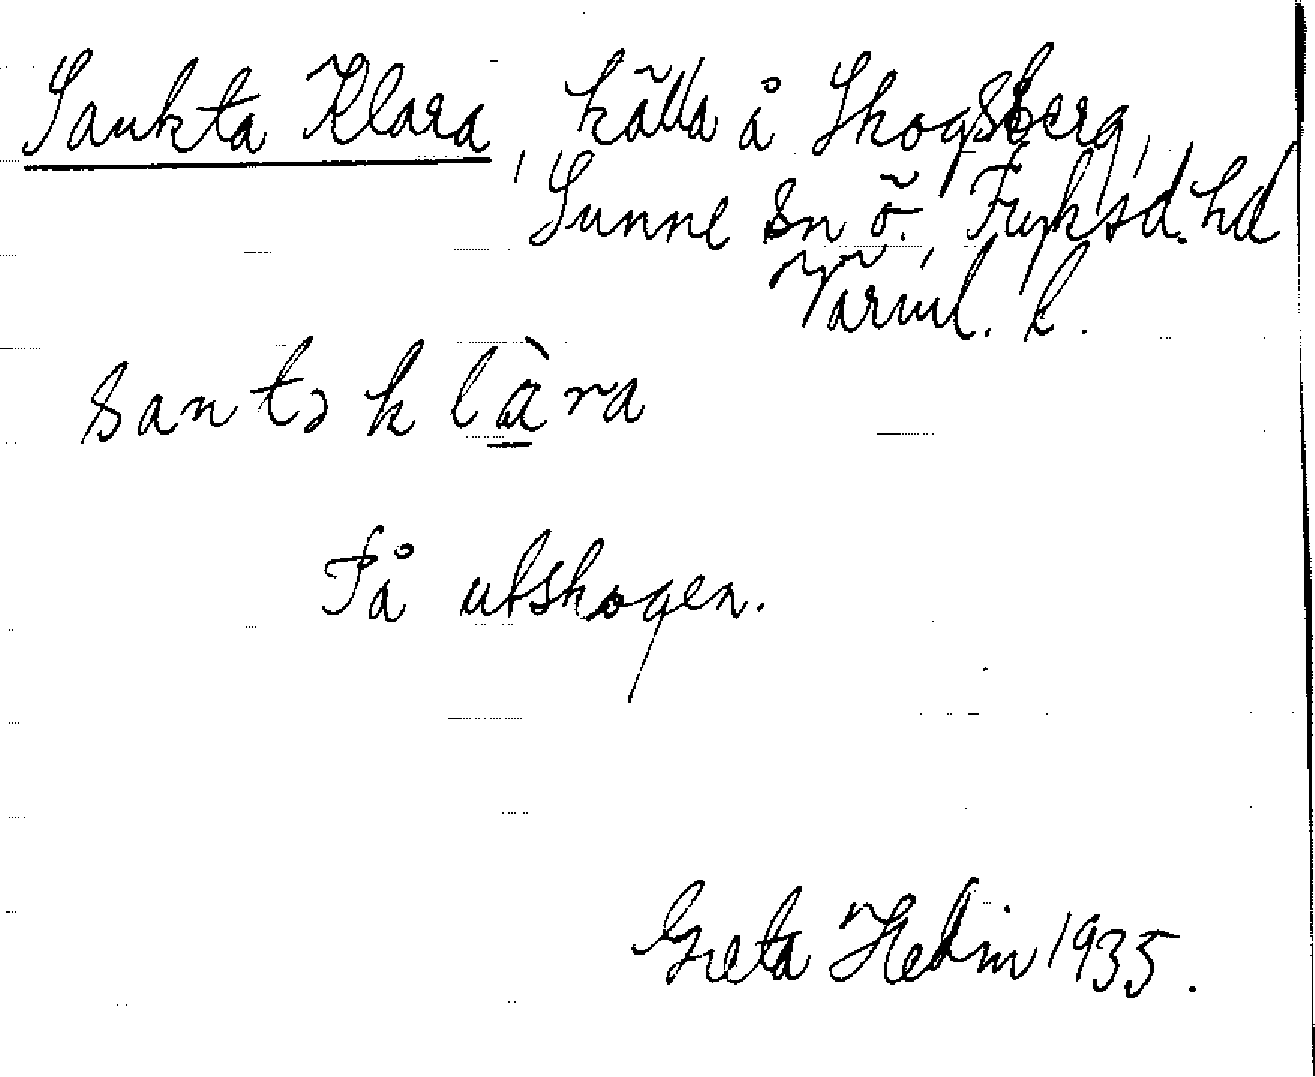 Sankta Klara, källa å Skogsberg,
Sunne sn ö. Fryksd. hd
Värml. l.
santə klàra
På utskogen.
Greta Hedin 1935.